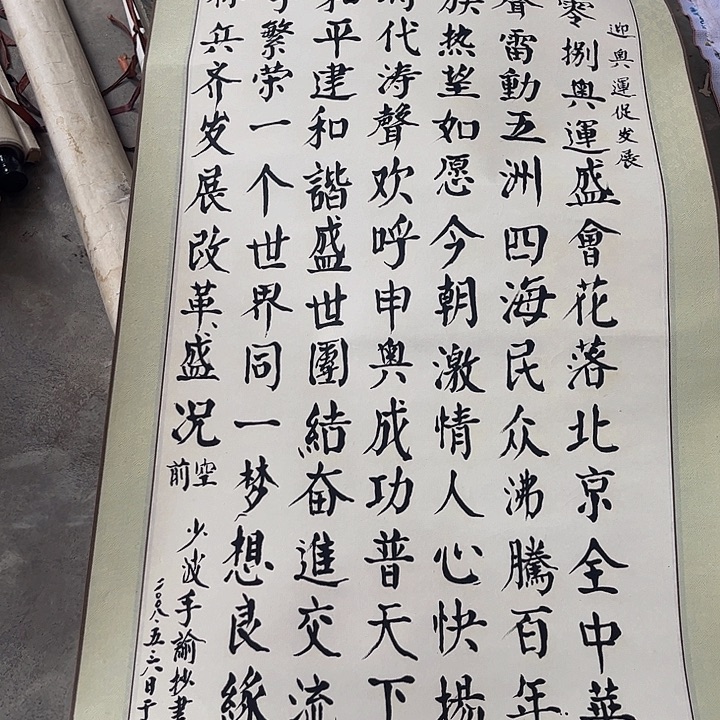 迎奥運促发展
零捌奥運盛會花落北京全中華
聲雷動五洲四海民众沸騰百年
族热望如愿今朝激情人心快揚
代涛聲欢呼申奥成功普天下
和平建和諧盛世團結奋進交流
繁荣一个世界同一梦想良緣
兵齐发展改革盛况
空前
少波手諭抄書
二00八.五.六日于